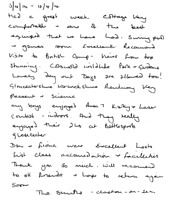 Had a great week. Cottage very
comfortable - one of the best
equipment that we have had. Swimming pool
+ games room excellent. Recommend
visit to Butts Farm - Views from top
stunning. Cotswold Wildlife Park + Gardens
lovely day out Dogs are allowed too!
Gloucestershire Warwickshire Railway very
pleasant + Scenic
my boys enjoyed Area 7 Rally + Laser
Combat - indoors. And they really
enjoyed their 2hrs at Battlesports
Gloucester
Don + Fiona were excellent hosts
First class accommodation + facilities
Thank you so much - will recommend
to all friends + hope to return again
soon
The Smiths - Clacton-on-Sea